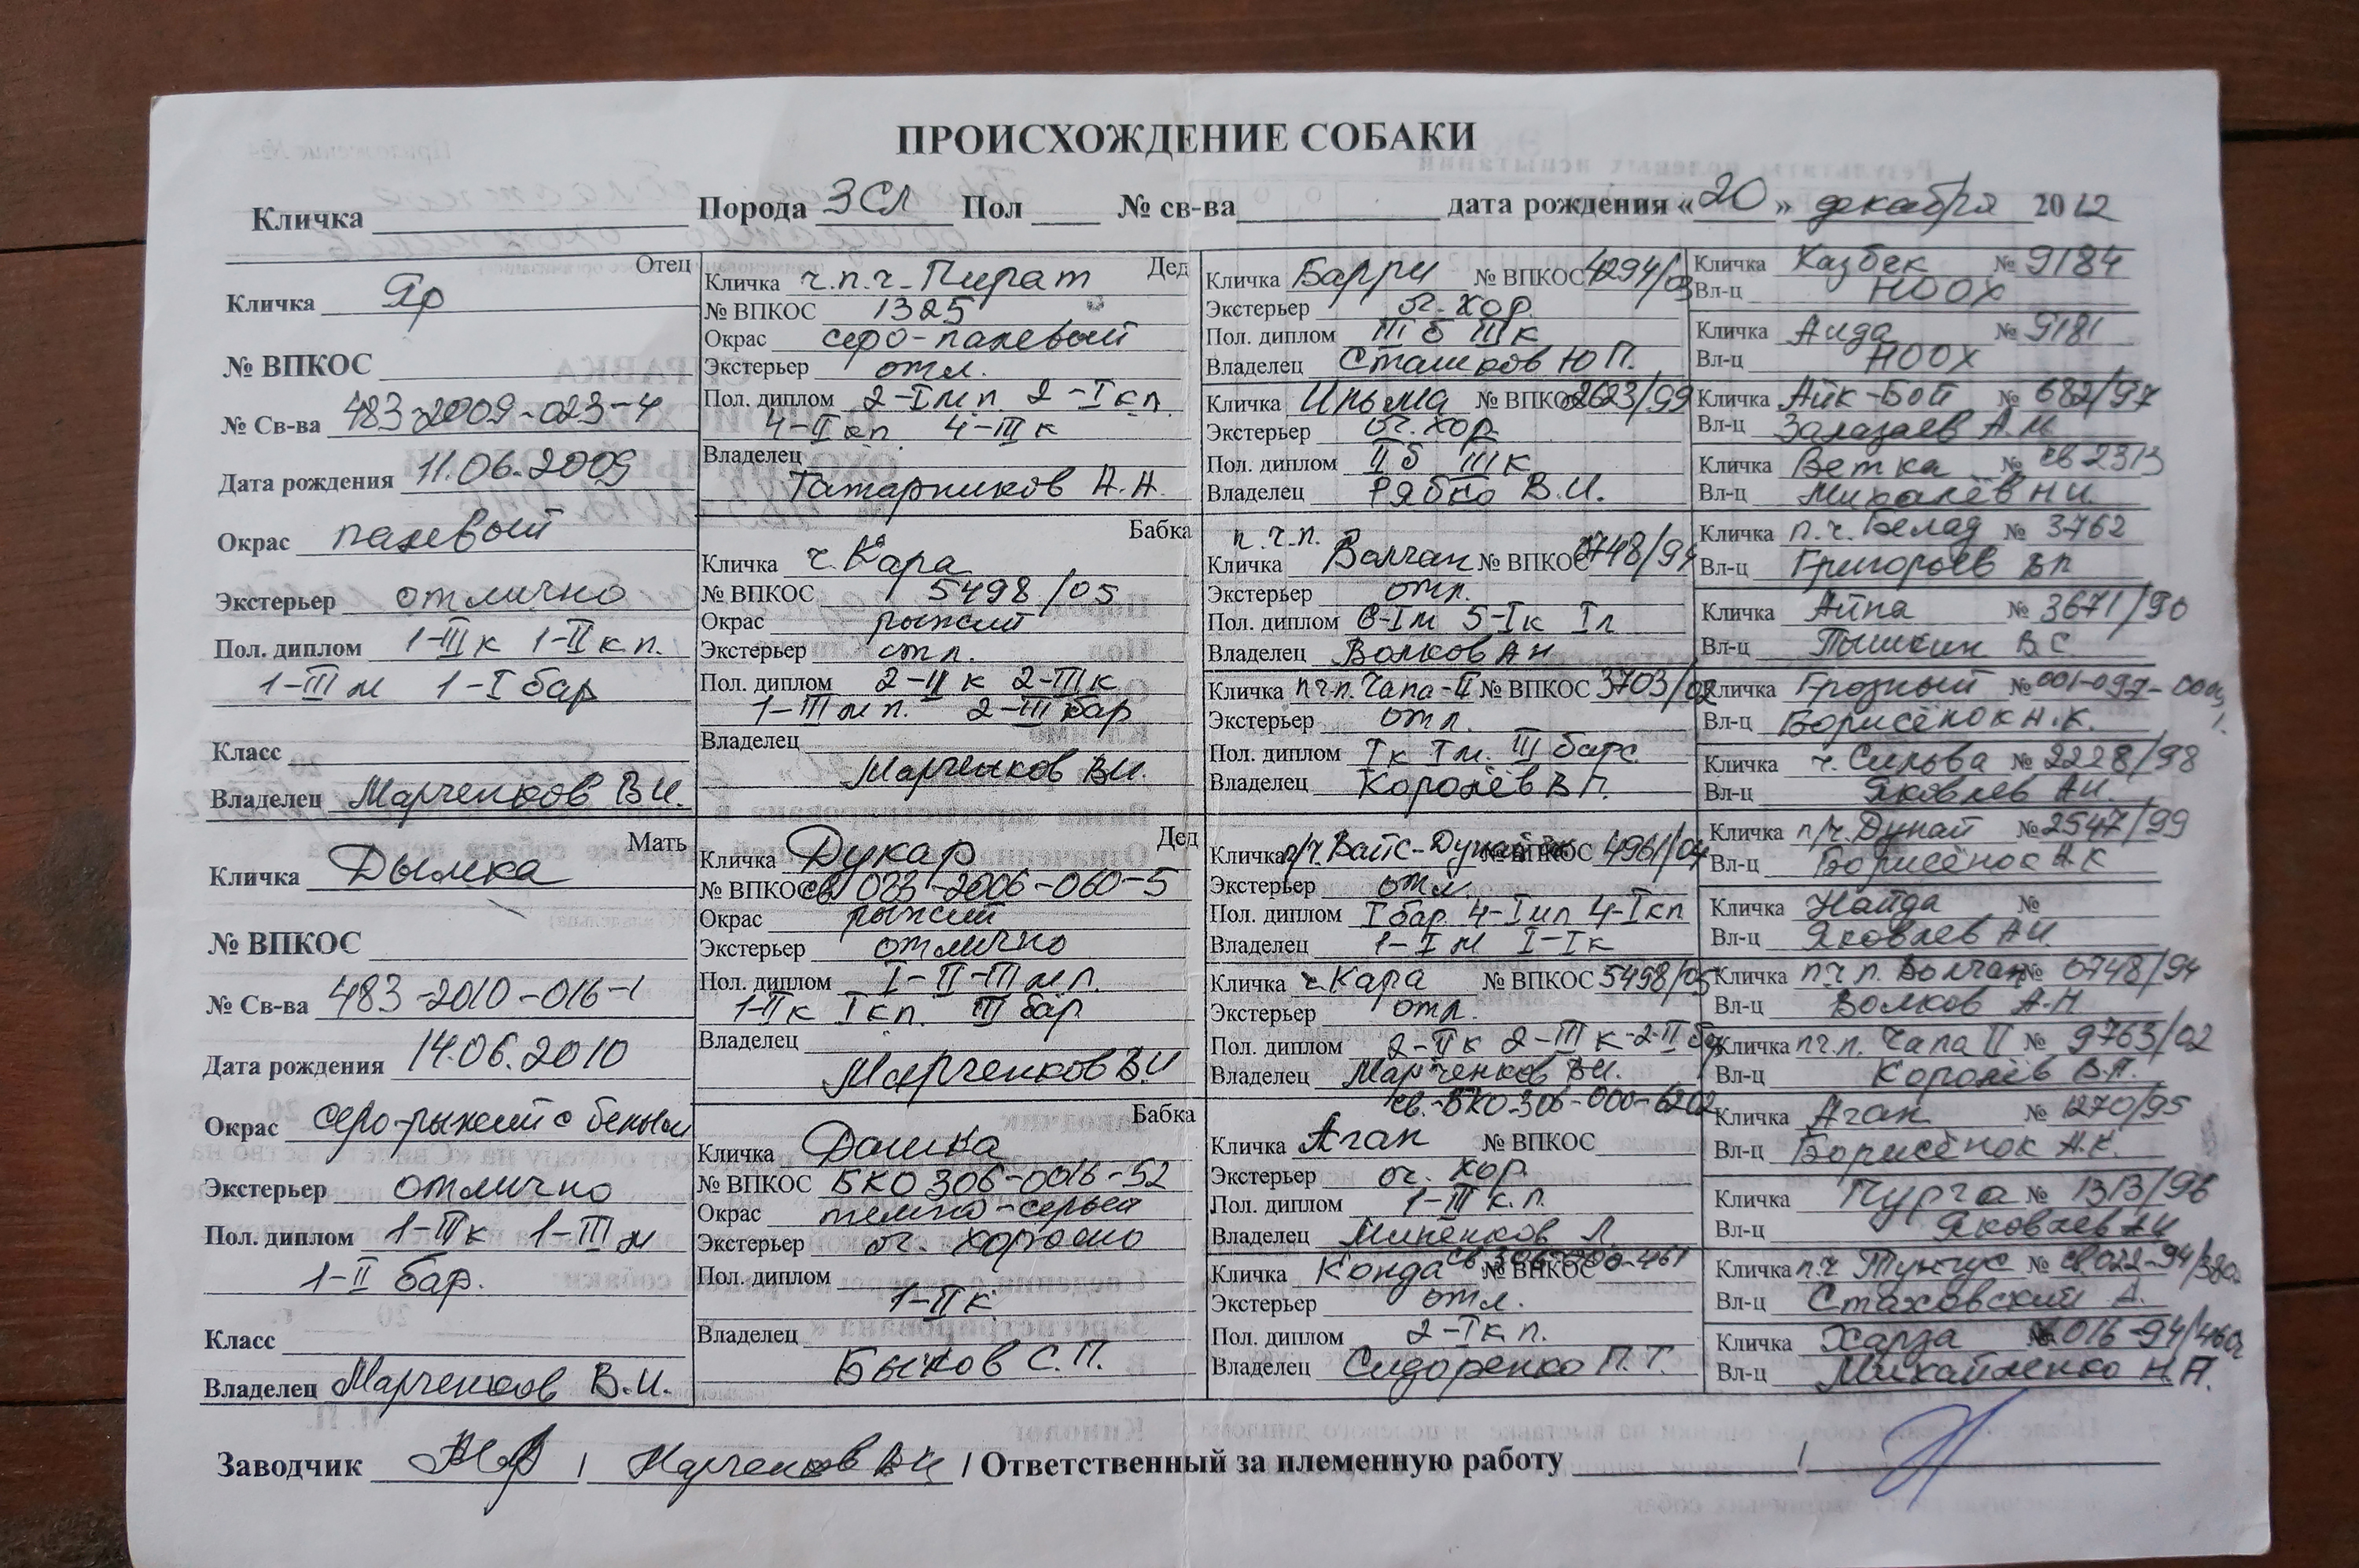 ПРОИСХОЖДЕНИЕ СОБАКИ
Кличка Порода ЗСЛ Пол № св-ва дата рождения «20» декабря 2012
Отец
Кличка Яр
№ ВПКОС
№ Св-ва 483-2009-023-4
Дата рождения 11.06.2009
Окрас палевый
Экстерьер отлично
Пол. диплом 1-III к 1-II к.п.
1-III м 1-I бар
Класс
Владелец Марченков В.И.
Мать
Кличка Дымка
№ ВПКОС
№ Св-ва 483-2010-016-1
Дата рождения 14.06.2010
Окрас серо-рыжий с белым
Экстерьер отлично
Пол. диплом 1-III к 1-III м
1-II бар.
Класс
Владелец Марченков В.И.
Дед
Кличка ч.п.ч. Пират
№ ВПКОС 1325
Окрас серо-палевый
Экстерьер отл.
Пол. диплом 2-I мп 2-I кп.
4-II кп 4-III к
Владелец
Татарников А.А.
Бабка
Кличка ч. Кара
№ ВПКОС 5498/05
Окрас рыжий
Экстерьер отл.
Пол. диплом 2-II к 2-III к
1-III мп. 2-III бар
Владелец
Марченков В.И.
Дед
Кличка Дукар
№ ВПКОС св 023-2006-060-5
Окрас рыжий
Экстерьер отлично
Пол. диплом I-II-III мп.
1-II к I кп. III бар
Владелец
Марченков В.И
Бабка
Кличка Дашка
№ ВПКОС БКО 306-0016-52
Окрас темно-серый
Экстерьер оч. хорошо
Пол. диплом
1-II к
Владелец
Быков С.П.
Кличка Барри № ВПКОС 4294/03
Экстерьер оч. хор.
Пол. диплом III б III к
Владелец Сташков Ю П.
Кличка Ильма № ВПКОС 2623/99
Экстерьер оч. хор.
Пол. диплом II б III к
Владелец Рябко В.И.
п.ч.п.
Кличка Волчан № ВПКОС 0748/94
Экстерьер отл.
Пол. диплом 6-I м 5-I к I л
Владелец Волков А Н
Кличка пч.п. Чапа-II № ВПКОС 3703/02
Экстерьер отл.
Пол. диплом I к I м. III барс.
Владелец Королёв В П.
Кличка п/ч. Вайс-Дунай № ВПКОС 4961/04
Экстерьер отл.
Пол. диплом I бар. 4-I мп 4-I кп
Владелец 1-I м I-I к
Кличка ч. Кара № ВПКОС 5498/05
Экстерьер отл.
Пол. диплом 2-II к 2-III к-2-II бар
Владелец Марченков В.И.
св.-БКО-306-000-6202
Кличка Аган № ВПКОС
Экстерьер оч. хор.
Пол. диплом 1-III к.п.
Владелец Миненков Л.
Кличка Конда № ВПКОС
Экстерьер отл.
Пол. диплом 2-I к п.
Владелец Сидоренко П.Т.
Кличка Казбек № 9184
Вл-ц НООХ
Кличка Аида № 9181
Вл-ц НООХ
Кличка Айк-Бой № 682/97
Вл-ц Залазаев А.М
Кличка Ветка № св 2313
Вл-ц Михалёв Н И.
Кличка п.ч. Белад № 3762
Вл-ц Григорьев
Кличка Айпа № 3671/90
Вл-ц Пышкин В С.
Кличка Грозный № 001-097-
Вл-ц Борисёнок Н.К.
Кличка ч. Сильва № 2228/98
Вл-ц Яковлев А И.
Кличка п/ч. Дунай № 2547/99
Вл-ц Борисёнок А К
Кличка Найда №
Вл-ц Яковлев А И.
Кличка п.ч.п. Волчан № 0748/94
Вл-ц Волков А.Н
Кличка пч.п. Чапа II № 9763/02
Вл-ц Королёв В.П.
Кличка Аган № 1270/95
Вл-ц Борисёнок А.К.
Кличка Пурга № 1313/96
Вл-ц Яковлев А И
Кличка п.ч Тунгус № св 022-94/
Вл-ц Стаховский А.
Кличка Харза 016-94/
Вл-ц Михайленко Н.П.
Заводчик / Марченков В И / Ответственный за племенную работу /